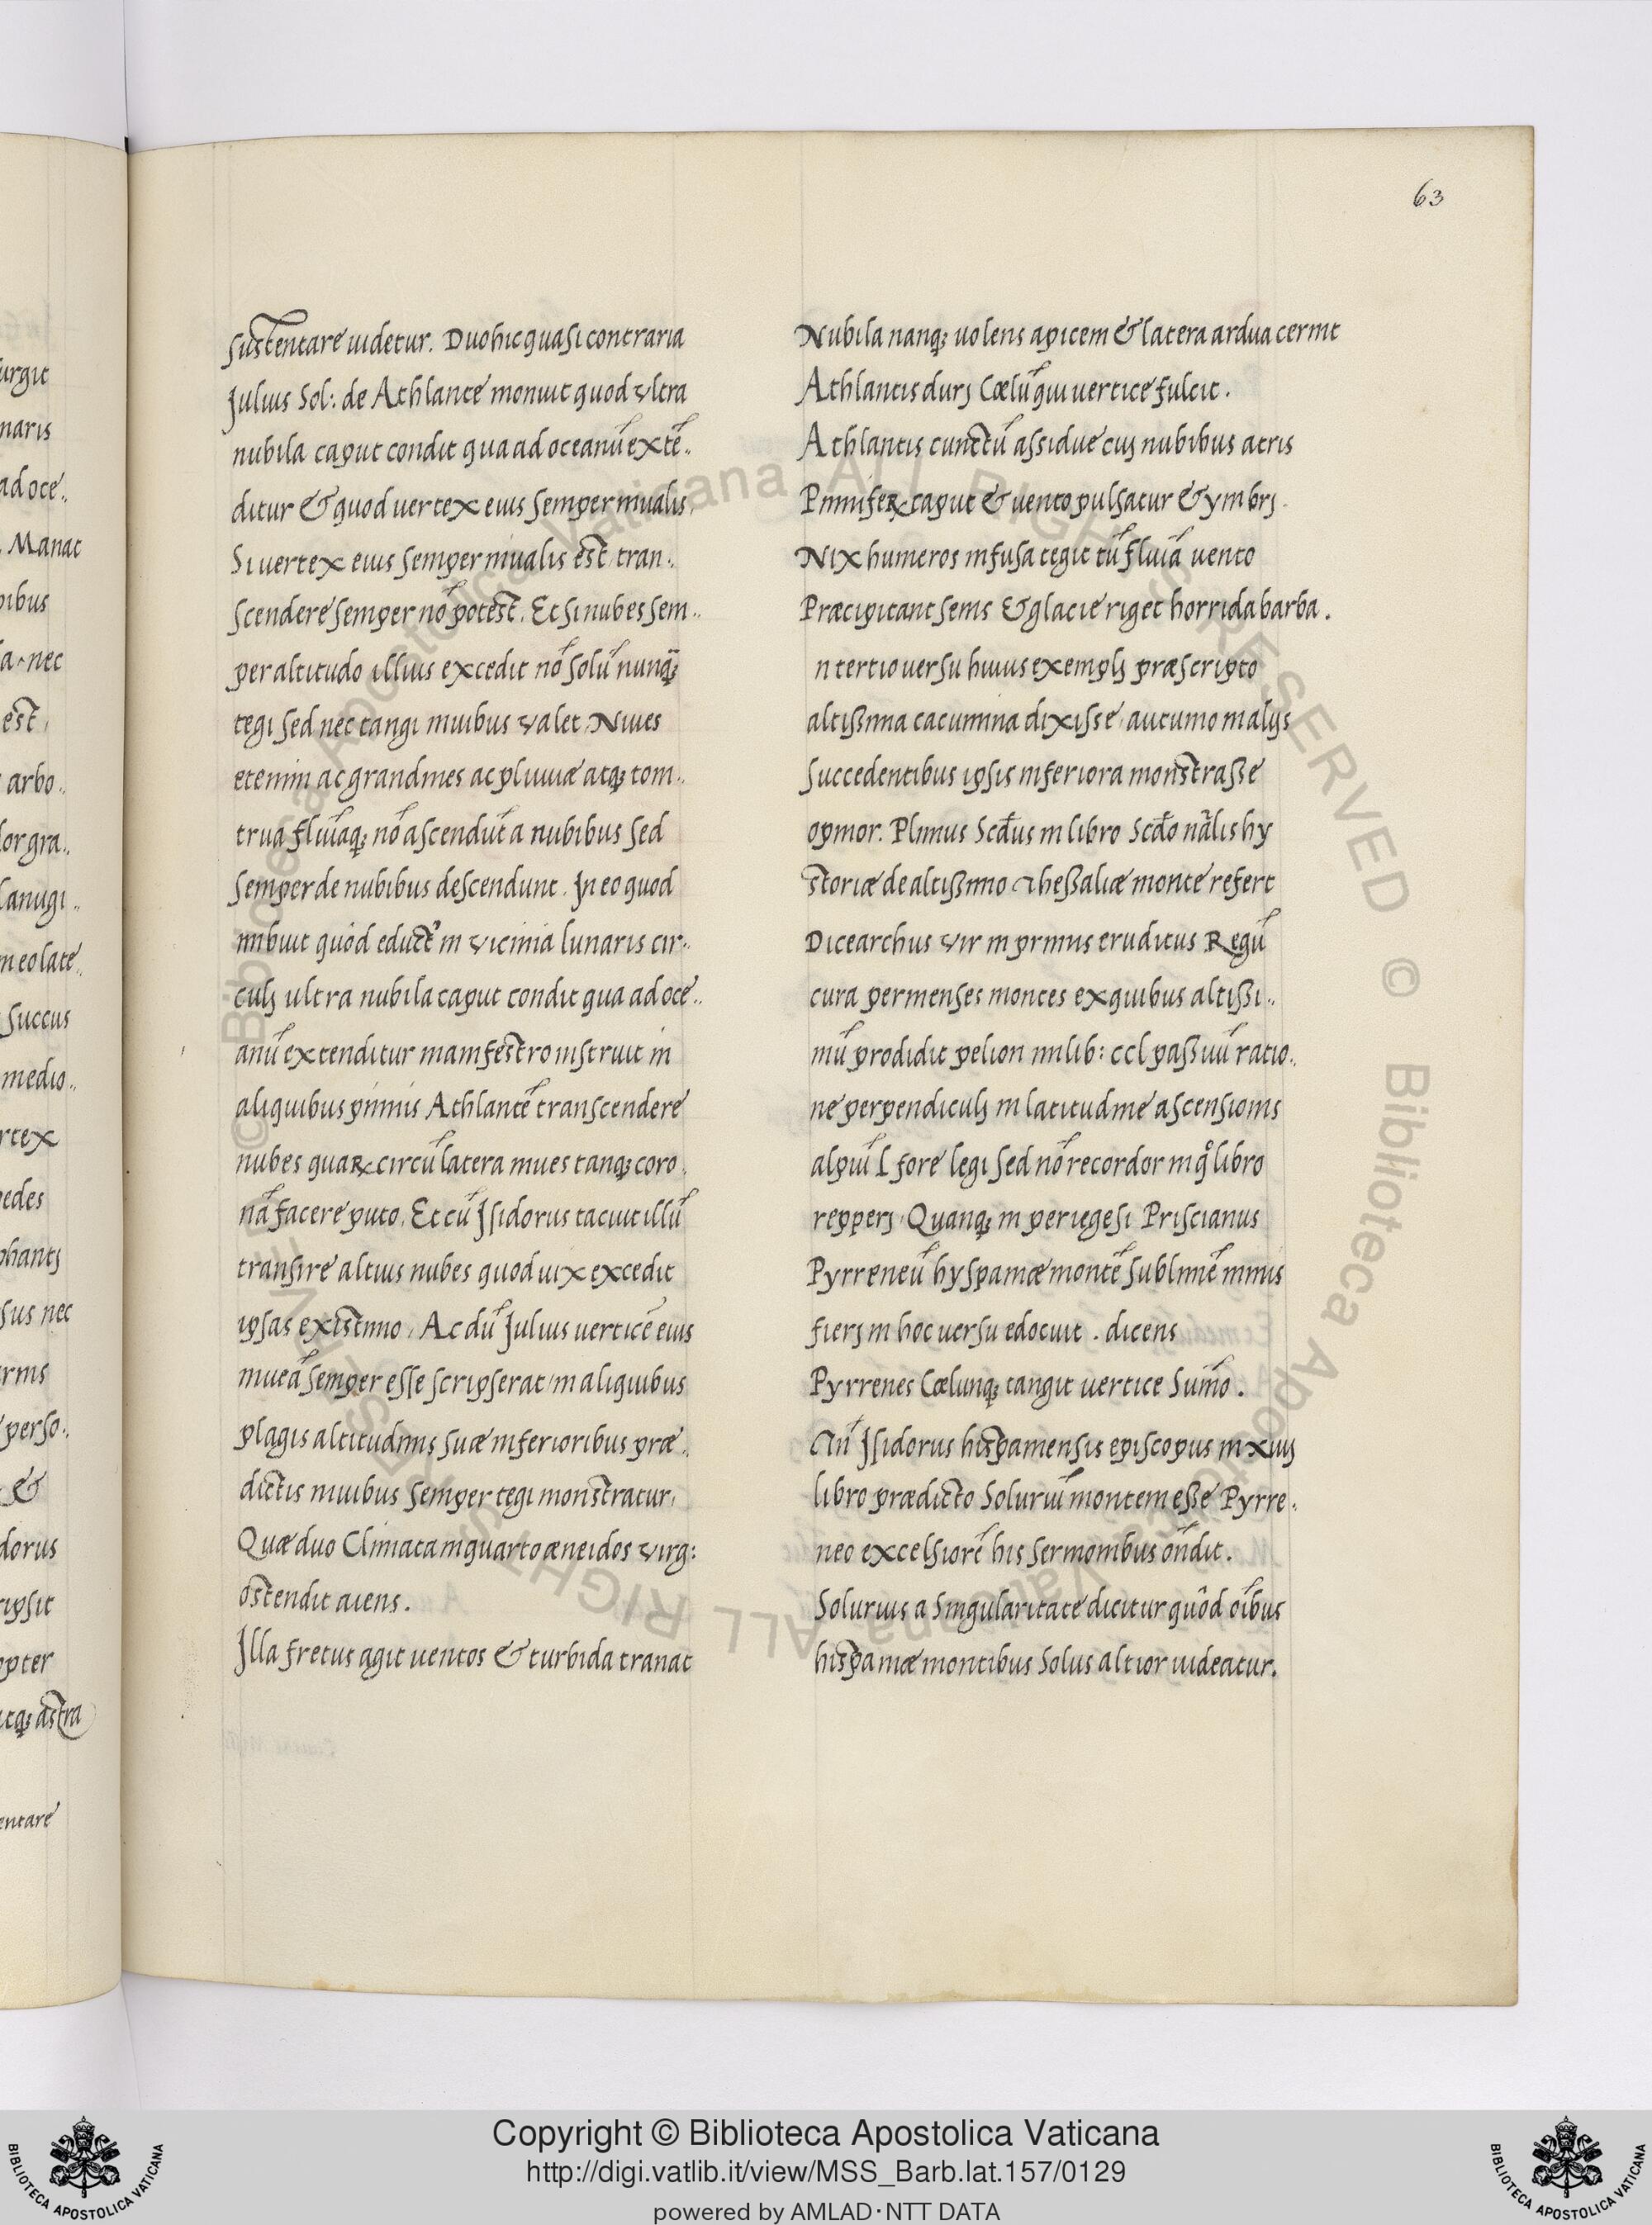 63
sustentare uidetur. Duo hic quasi contraria
Julius Sol: de Athlante monuit quod vltra
nubila caput condit qua ad oceanū extē..
ditur & quod uertex eius semper niualis.
Si uertex eius semper niualis est, tran..
scendere semper nō potest. Et si nubes sem..
per altitudo illius excedit nō solū nunq̄ꝫ
tegi sed nec tangi niuibus valet. Niues
etenim ac grandines ac pluuiæ atqꝫ tom..
trua fluuiaqꝫ nō ascendūt a nubibus sed
semper de nubibus descendunt. In eo quod
innbuit quòd educt' in vicinia lunaris cir..
culj ultra nubila caput condit qua ad oce..
anū extenditur manifesto instruit in
aliquibus primis Athlantē transcendere
nubes quaꝝ circū latera niues tanqꝫ coro..
nā facere puto. Et cū Jsidorus tacuit illū
transire altius nubes quod uix excedit
ipsas existimo. Ac dū Julius uerticē eius
niueā semper esse scripserat, in aliquibus
plagis altitudinis suæ inferioribus præ..
dictis niuibus semper tegi monstratur,
Quæ duo Climata in quarto æneidos virg:
ostendit aiens.
Jlla fretus agit uentos & turbida tranat
Nubila nanqꝫ uolens apicem & latera ardua cernit
Athlantis durj Cœlū qui uertice fulcit.
Athlantis cunctū assidue cuj nubibus atris
Pinniferꝝ caput & uento pulsatur & ymbrj.
Nix humeros infusa tegit tū fluiā uento
Præcipitant senis & glacie riget horrida barba.
n tertio uersu huius exemplj præscripto
altißima cacumina dixisse, autumo malijs
Succedentibus ipsis inferiora monstraße
opinor. Plinius Scd̄us in libro Scd̄o nālis hy
storiæ de altißimo Theßaliæ monte refert
Dicearchus vir in primis eruditus Regū
cura permenses montes ex quibus altißi..
mū prodidit pelion in lib: ccl paßuū ratio..
ne perpendiculj in latitudine ascensionis
alpiū L fore legi sed nō recordor in qͦ libro
repperj. Quanqꝫ in periegesi Priscianus
Pyrreneū hyspaniæ montē sublimē nimis
fierj in hoc uersu edocuit. dicens
Pyrrenes Cœlunqꝫ tangit uertice Sumō.
Tn̄ Jsidorus hispaniensis episcopus in xiiij
libro prædicto Soluriū montem eße Pyrre..
neo excelsiorē his sermonibus ōndit.
Solurius a Singularitate dicitur quôd oībus
hispaniæ montibus Solus altior uideatur.
Copyright © Biblioteca Apostolica Vaticana
http://digi.vatlib.it/view/MSS_Barb.lat.157/0129
powered by AMLAD·NTT DATA